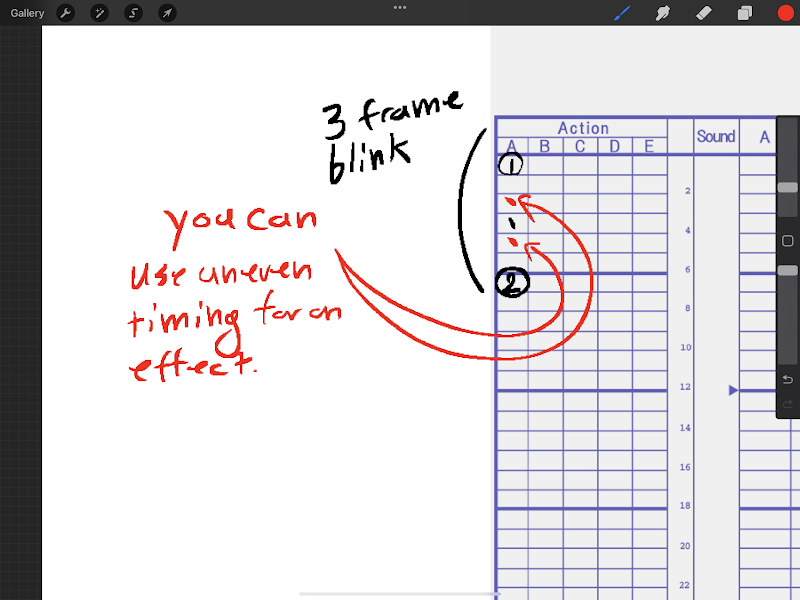 Gallery
3 frame
blink
you can
use uneven
timing for an
effect.
Action
Sound
A
A B C D E
1
2
2
4
6
8
10
12
14
16
18
20
22